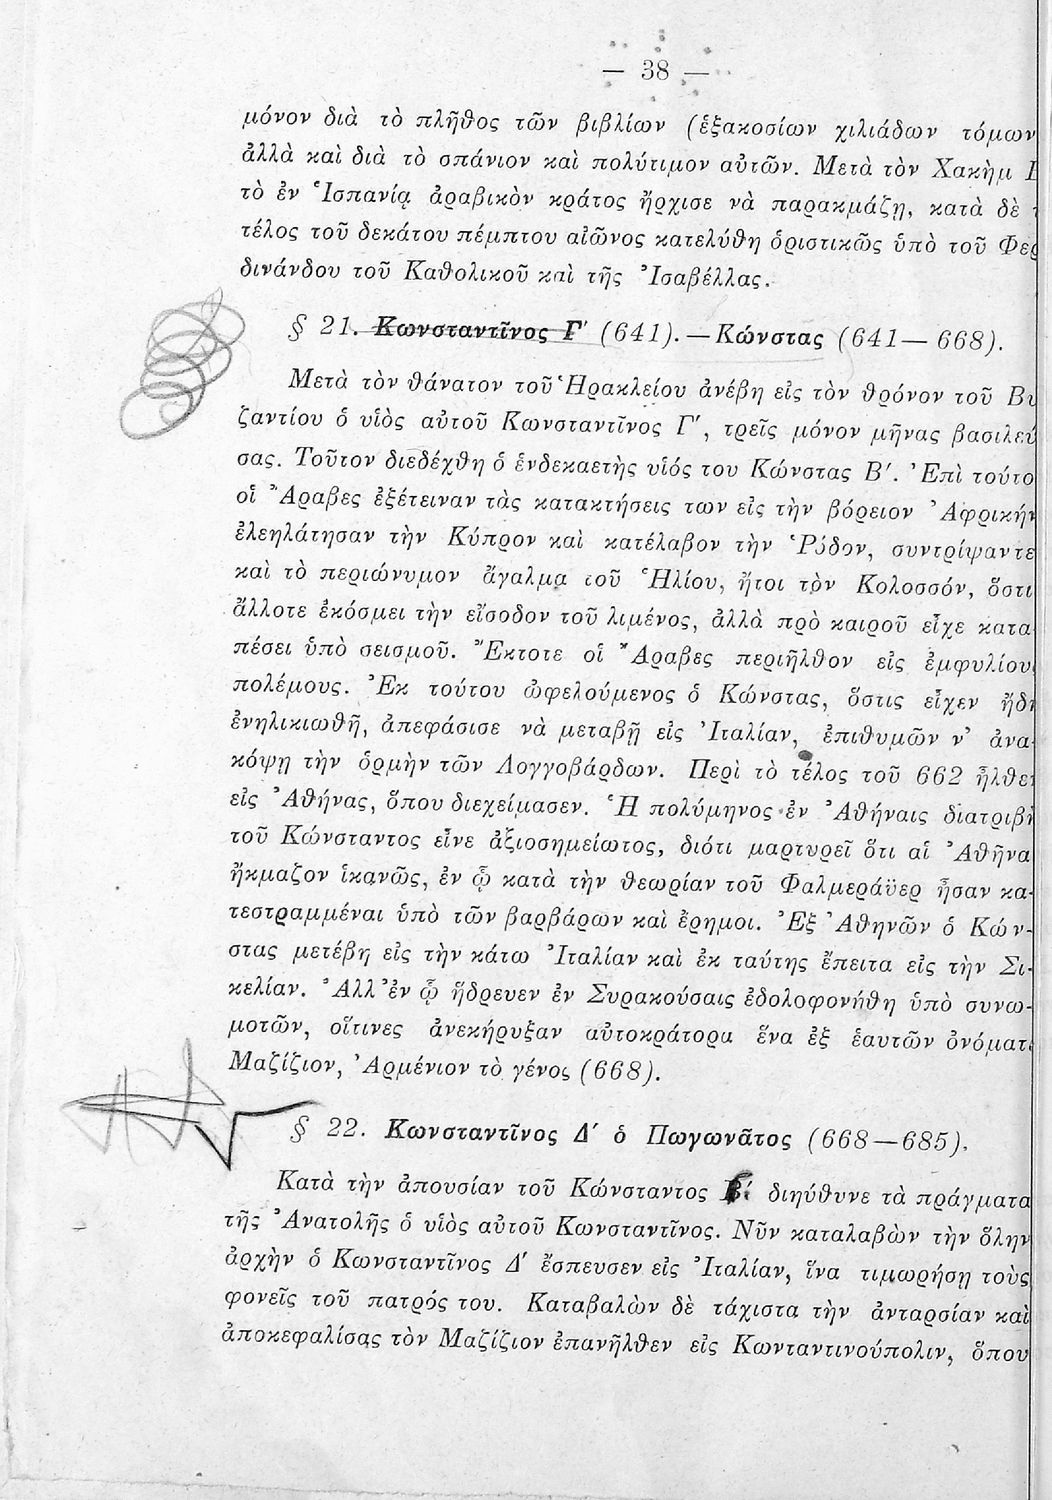 — 38 —
μόνον διὰ τὸ πλῆθος τῶν βιβλίων (ἑξακοσίων χιλιάδων τόμων
ἀλλὰ καὶ διὰ τὸ σπάνιον καὶ πολύτιμον αὐτῶν. Μετὰ τὸν Χακὴμ
τὸ ἐν Ἱσπανίᾳ ἀραβικὸν κράτος ἤρχισε νὰ παρακμάζῃ, κατὰ δὲ
τέλος τοῦ δεκάτου πέμπτου αἰῶνος κατελύθη ὁριστικῶς ὑπὸ τοῦ Φερ
δινάνδου τοῦ Καθολικοῦ καὶ τῆς Ἰσαβέλλας.
§ 21. Κωνσταντῖνος Γ′ (641).—Κώνστας (641—668).
Μετὰ τὸν θάνατον τοῦ Ἡρακλείου ἀνέβη εἰς τὸν θρόνον τοῦ Βυ
ζαντίου ὁ υἱὸς αὐτοῦ Κωνσταντῖνος Γ′, τρεῖς μόνον μῆνας βασιλεύ
σας. Τοῦτον διεδέχθη ὁ ἑνδεκαετὴς υἱός του Κώνστας Β′. Ἐπὶ τούτο
οἱ Ἄραβες ἐξέτειναν τὰς κατακτήσεις των εἰς τὴν βόρειον Ἀφρικήν
ἐλεηλάτησαν τὴν Κύπρον καὶ κατέλαβον τὴν Ῥόδον, συντρίψαντε
καὶ τὸ περιώνυμον ἄγαλμα τοῦ Ἡλίου, ἤτοι τὸν Κολοσσόν, ὅστι
ἄλλοτε ἐκόσμει τὴν εἴσοδον τοῦ λιμένος, ἀλλὰ πρὸ καιροῦ εἶχε κατα
πέσει ὑπὸ σεισμοῦ. Ἔκτοτε οἱ Ἄραβες περιῆλθον εἰς ἐμφυλίου
πολέμους. Ἐκ τούτου ὠφελούμενος ὁ Κώνστας, ὅστις εἶχεν ἤδη
ἐνηλικιωθῆ, ἀπεφάσισε νὰ μεταβῇ εἰς Ἰταλίαν, ἐπιθυμῶν ν' ἀνα-
κόψῃ τὴν ὁρμὴν τῶν Λογγοβάρδων. Περὶ τὸ τέλος τοῦ 662 ἦλθε
εἰς Ἀθήνας, ὅπου διεχείμασεν. Ἡ πολύμηνος ἐν Ἀθήναις διατριβὴ
τοῦ Κώνσταντος εἶνε ἀξιοσημείωτος, διότι μαρτυρεῖ ὅτι αἱ Ἀθῆνα
ἤκμαζον ἱκανῶς, ἐν ᾧ κατὰ τὴν θεωρίαν τοῦ Φαλμεράϋερ ἦσαν κα-
τεστραμμέναι ὑπὸ τῶν βαρβάρων καὶ ἔρημοι. Ἐξ Ἀθηνῶν ὁ Κών-
στας μετέβη εἰς τὴν κάτω Ἰταλίαν καὶ ἐκ ταύτης ἔπειτα εἰς τὴν Σι-
κελίαν. Ἀλλ' ἐν ᾧ ἥδρευεν ἐν Συρακούσαις ἐδολοφονήθη ὑπὸ συνω-
μοτῶν, οἵτινες ἀνεκήρυξαν αὐτοκράτορα ἕνα ἐξ ἑαυτῶν ὀνόματι
Μαζίζιον, Ἀρμένιον τὸ γένος (668).
§ 22. Κωνσταντῖνος Δ′ ὁ Πωγωνᾶτος (668—685).
Κατὰ τὴν ἀπουσίαν τοῦ Κώνσταντος Β′ διηύθυνε τὰ πράγματα
τῆς Ἀνατολῆς ὁ υἱὸς αὐτοῦ Κωνσταντῖνος. Νῦν καταλαβὼν τὴν ὅλην
ἀρχὴν ὁ Κωνσταντῖνος Δ′ ἔσπευσεν εἰς Ἰταλίαν, ἵνα τιμωρήσῃ τοὺς
φονεῖς τοῦ πατρός του. Καταβαλὼν δὲ τάχιστα τὴν ἀνταρσίαν καὶ
ἀποκεφαλίσας τὸν Μαζίζιον ἐπανῆλθεν εἰς Κωνταντινούπολιν, ὅπου